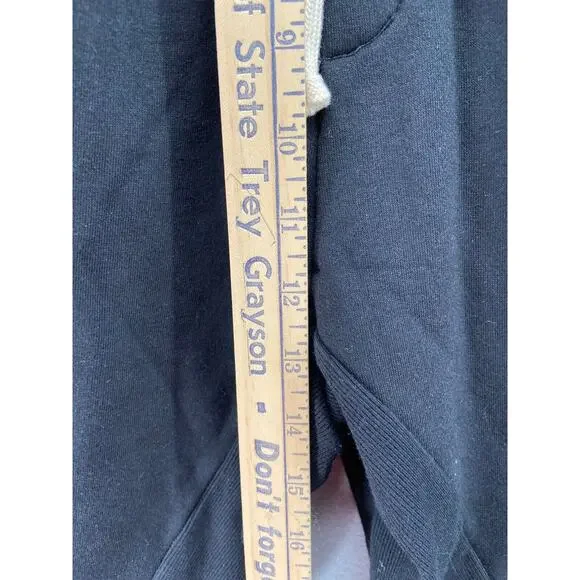 f State Trey Grayson - Don't forg
9 10 11 12 13 14 15 16